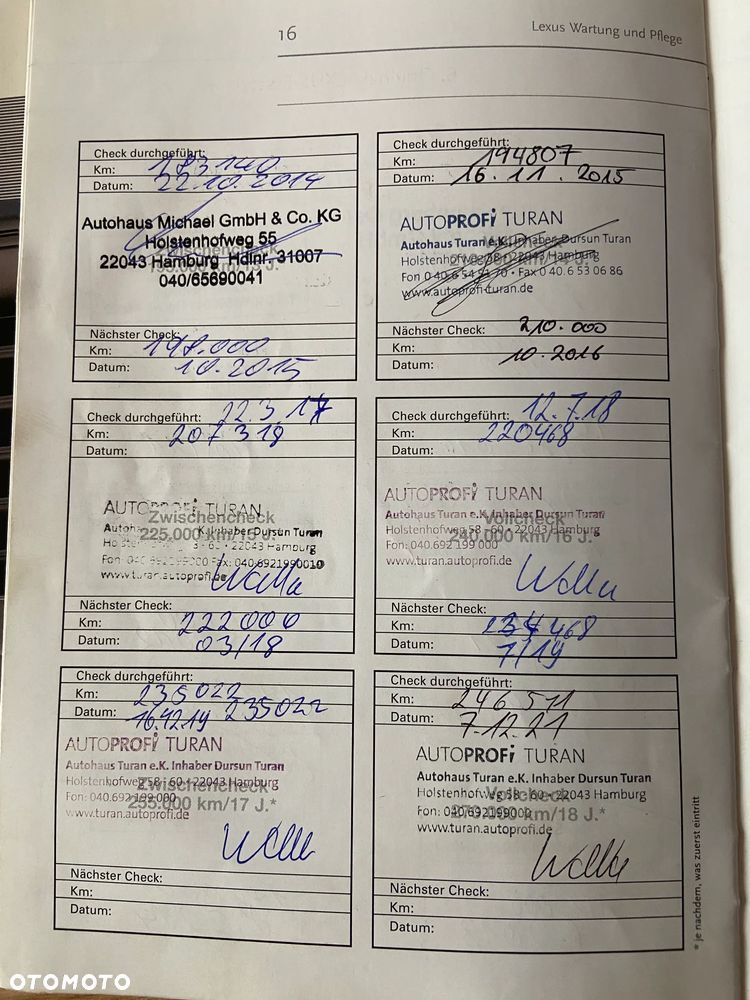 16
Lexus Wartung und Pflege
Check durchgeführt:
Km: 183140
Datum: 22.10.2014
Autohaus Michael GmbH & Co. KG
Holstenhofweg 55
Zwischencheck
22043 Hamburg Hdlnr. 31007
195.000 km/13 J.
040/65690041
Nächster Check:
Km: 198.000
Datum: 10.2015
Check durchgeführt:
Km: 194807
Datum: 16.11.2015
AUTOPROFI TURAN
Autohaus Turan e.K. Inhaber Dursun Turan
Vollcheck
Holstenhofweg 58 • 22043 Hamburg
210.000 km/14 J.
Fon 0 40.6 54 91 70 • Fax 0 40.6 53 06 86
www.autoprofi-turan.de
Nächster Check: 210.000
Km:
Datum: 10.2016
Check durchgeführt: 22.3.17
Km: 207318
Datum:
AUTOPROFI TURAN
Zwischencheck
K. Inhaber Dursun Turan
225.000 km/15 J.
60 • 22043 Hamburg
Fax: 040.6921990010
www.turan.autoprofi.de
Nächster Check:
Km: 222000
Datum: 03/18
Check durchgeführt: 12.7.18
Km: 220468
Datum:
AUTOPROFI TURAN
Autohaus Turan e.K. Inhaber Dursun Turan
Vollcheck
Holstenhofweg 58 - 60 • 22043 Hamburg
240.000 km/16 J.
Fon: 040.692 199 000
www.turan.autoprofi.de
Nächster Check:
Km: 468
Datum: 7/19
Check durchgeführt:
Km: 235022
Datum: 235022
AUTOPROFI TURAN
Autohaus Turan e.K. Inhaber Dursun Turan
Holstenhofweg 58 - 60 • 22043 Hamburg
Zwischencheck
Fon: 040.692 199 000
255.000 km/17 J.*
www.turan.autoprofi.de
Nächster Check:
Km:
Datum:
Check durchgeführt:
Km: 246511
Datum: 7.12.21
AUTOPROFI TURAN
Autohaus Turan e.K. Inhaber Dursun Turan
Holstenhofweg 58 - 60 • 22043 Hamburg
Vollcheck
Fon: 040.692199000
270.000 km/18 J.*
www.turan.autoprofi.de
Nächster Check:
Km:
Datum:
* je nachdem, was zuerst eintritt
OTOMOTO